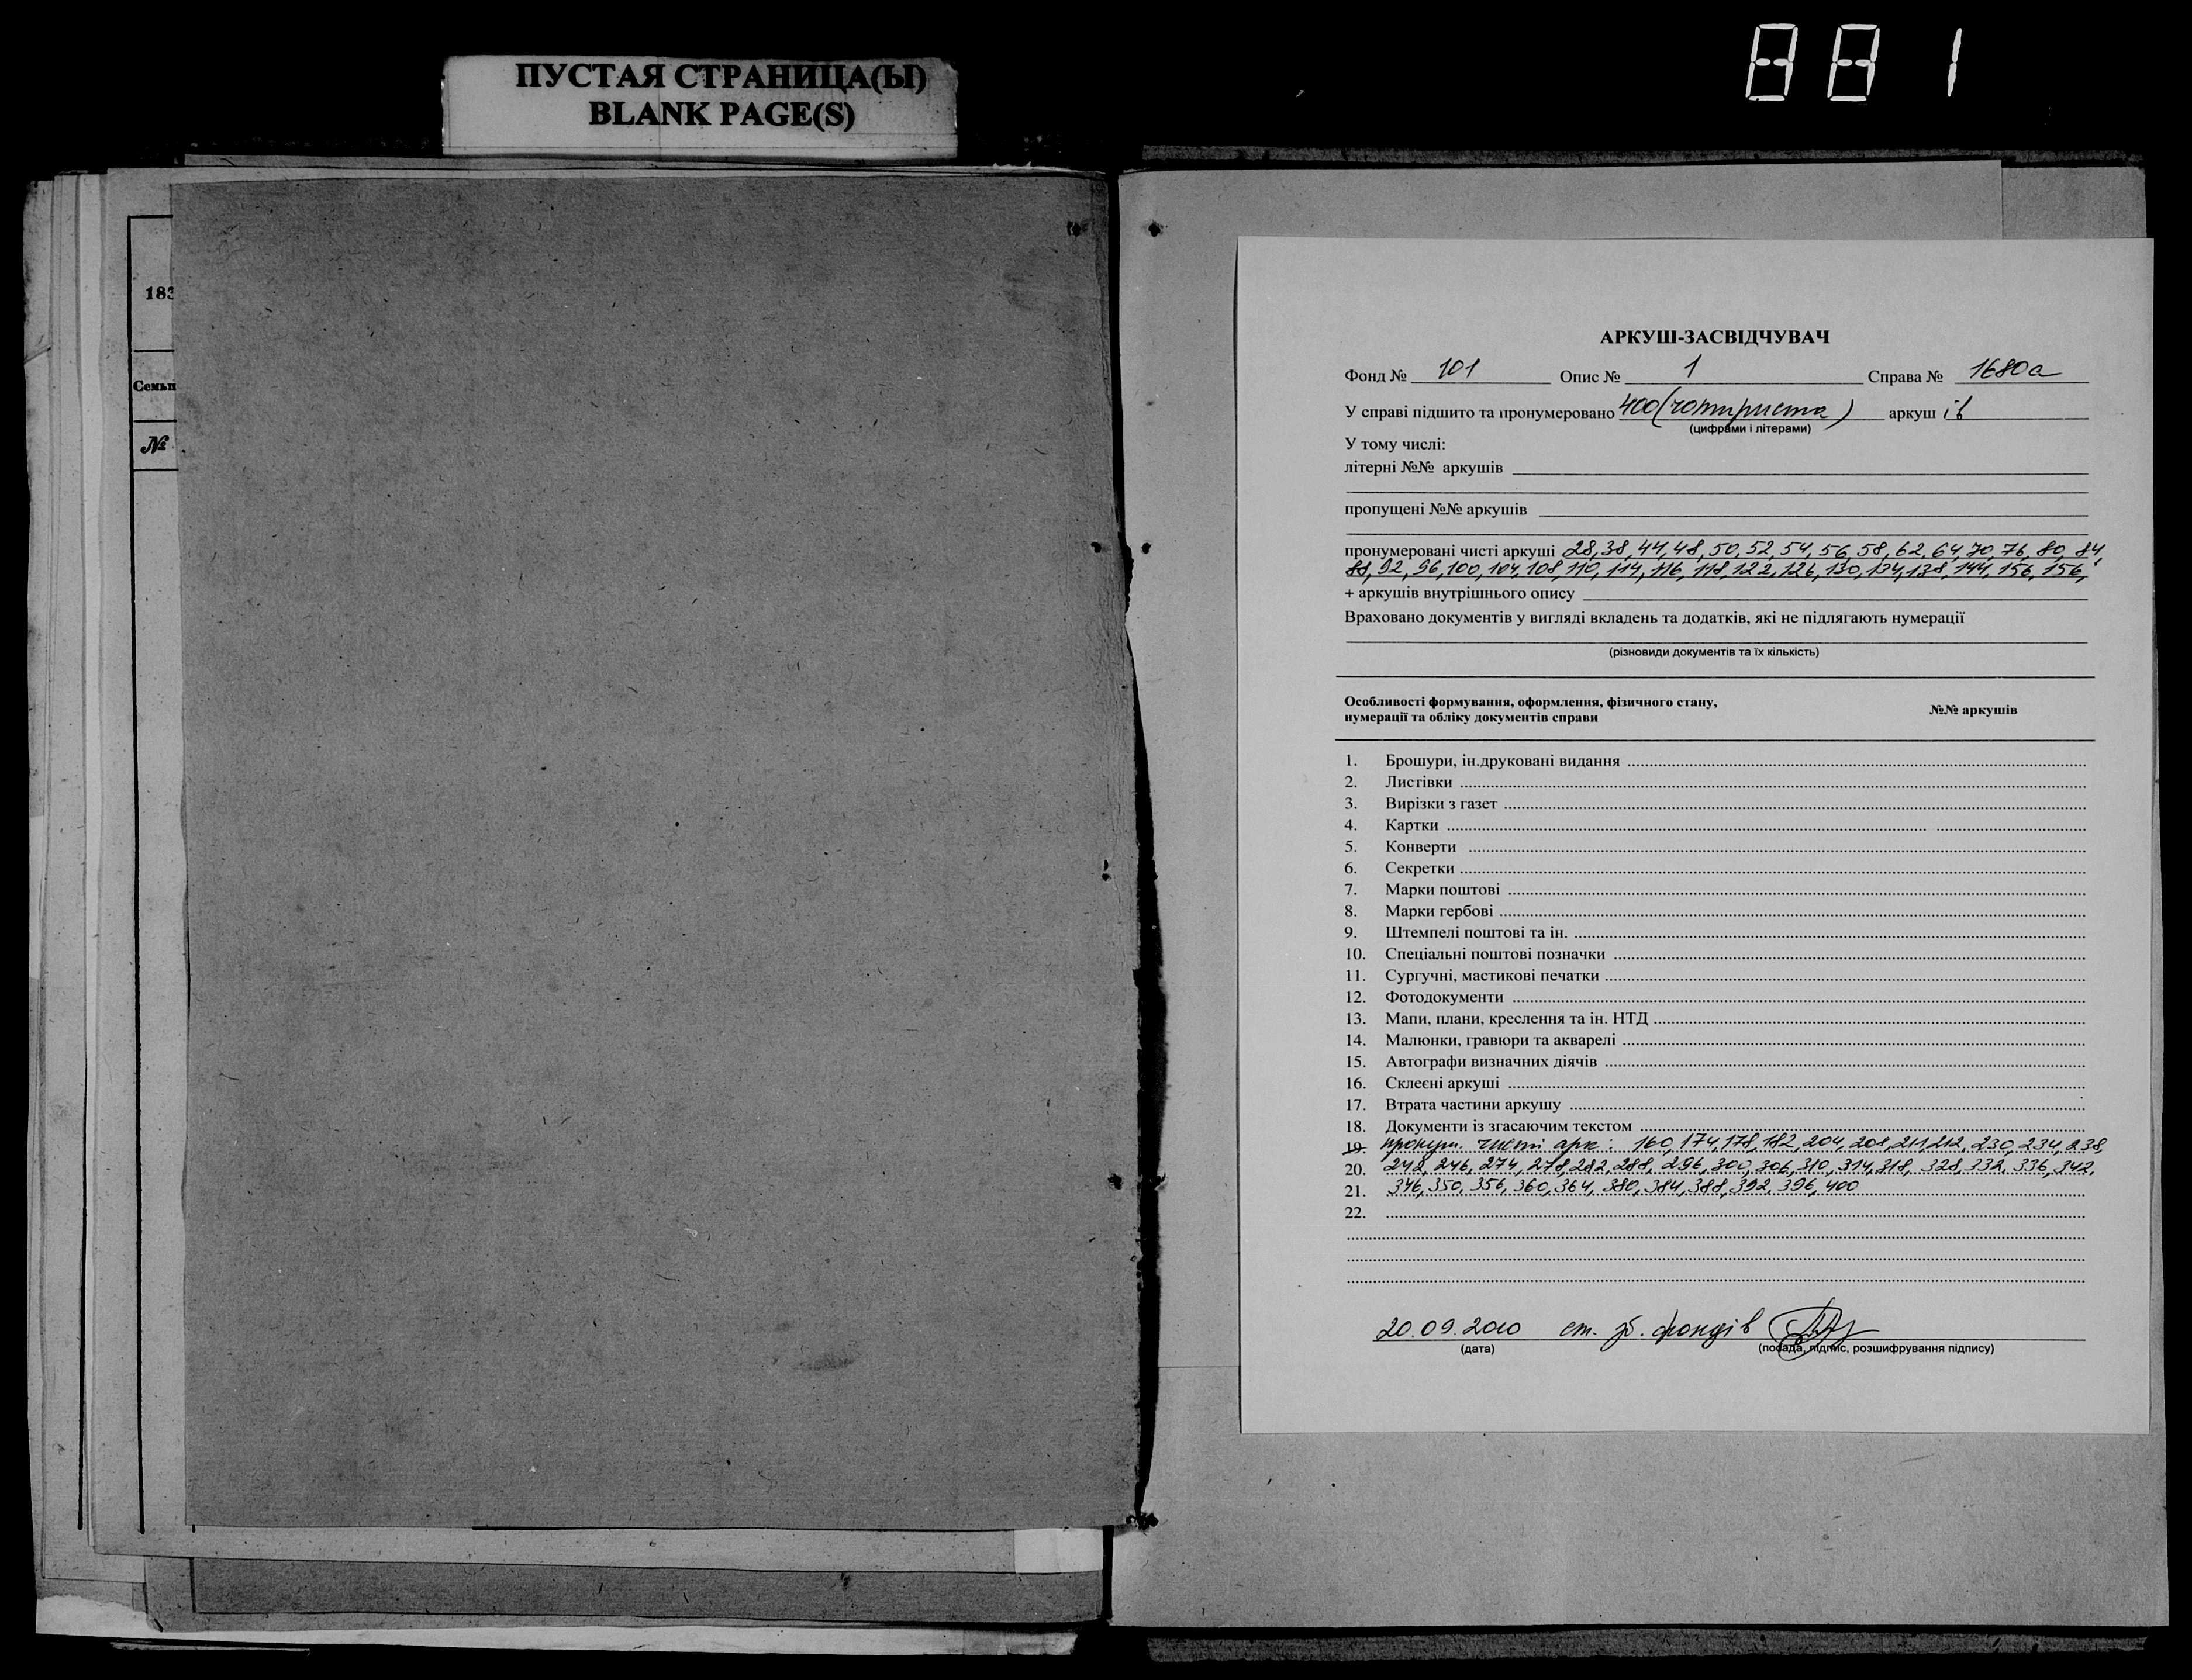 ПУСТАЯ СТРАНИЦА(Ы)
BLANK PAGE(S)
881
183
Семьи
№
АРКУШ-ЗАСВІДЧУВАЧ
Фонд № 101 Опис № 1 Справа № 1680а
У справі підшито та пронумеровано 400 (чотириста) аркушів
(цифрами і літерами)
У тому числі:
літерні №№ аркушів
пропущені №№ аркушів
пронумеровані чисті аркуші 28, 38, 44, 48, 50, 52, 54, 56, 58, 62, 64, 70, 76, 80, 84,
88, 92, 96, 100, 104, 108, 110, 114, 116, 118, 122, 126, 130, 134, 138, 144, 156, 156,
+ аркушів внутрішнього опису
Враховано документів у вигляді вкладень та додатків, які не підлягають нумерації
(різновиди документів та їх кількість)
Особливості формування, оформлення, фізичного стану,
нумерації та обліку документів справи №№ аркушів
1. Брошури, ін.друковані видання
2. Листівки
3. Вирізки з газет
4. Картки
5. Конверти
6. Секретки
7. Марки поштові
8. Марки гербові
9. Штемпелі поштові та ін.
10. Спеціальні поштові позначки
11. Сургучні, мастикові печатки
12. Фотодокументи
13. Мапи, плани, креслення та ін. НТД
14. Малюнки, гравюри та акварелі
15. Автографи визначних діячів
16. Склеєні аркуші
17. Втрата частини аркушу
18. Документи із згасаючим текстом
19. пронум. чисті арк: 160, 174, 178, 182, 204, 208, 211, 212, 230, 234, 238,
20. 242, 246, 274, 278, 282, 288, 296, 300, 306, 310, 314, 318, 328, 332, 336, 342,
21. 346, 350, 356, 360, 364, 380, 384, 388, 392, 396, 400
22.
20.09.2010 ст. зб. фондів
(дата) (посада, підпис, розшифрування підпису)